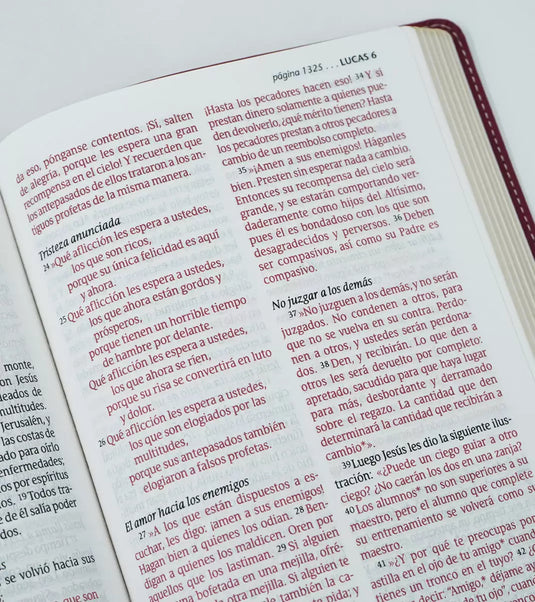 monte,
on Jesús
leados de
multitudes.
Jerusalén, y
las costas de
ado para oírlo
enfermedades;
os por espíritus
os. 19Todos tra-
e de él salía poder
dos.
se volvió hacia sus
que son
página 1325 . . . LUCAS 6
da eso, pónganse contentos. ¡Sí, salten
de alegría, porque les espera una gran
recompensa en el cielo! Y recuerden que
los antepasados de ellos trataron a los an-
tiguos profetas de la misma manera.
Tristeza anunciada
24 »Qué aflicción les espera a ustedes,
los que son ricos,
porque su única felicidad es aquí
y ahora.
25 Qué aflicción les espera a ustedes,
los que ahora están gordos y
prósperos,
porque tienen un horrible tiempo
de hambre por delante.
Qué aflicción les espera a ustedes,
los que ahora se ríen,
porque su risa se convertirá en luto
y dolor.
26 Qué aflicción les espera a ustedes,
los que son elogiados por las
multitudes,
porque sus antepasados también
elogiaron a falsos profetas.
El amor hacia los enemigos
27 »A los que están dispuestos a es-
cuchar, les digo: ¡amen a sus enemigos!
Hagan bien a quienes los odian. 28 Ben-
digan a quienes los maldicen. Oren por
aquellos que los lastiman. 29 Si alguien
una bofetada en una mejilla, ofré-
la otra mejilla. Si alguien te
también la ca-
¡Hasta los pecadores hacen eso! 34 Y si
prestan dinero solamente a quienes pue-
den devolverlo, ¿qué mérito tienen? Hasta
los pecadores prestan a otros pecadores a
cambio de un reembolso completo.
35 »¡Amen a sus enemigos! Háganles
bien. Presten sin esperar nada a cambio.
Entonces su recompensa del cielo será
grande, y se estarán comportando ver-
daderamente como hijos del Altísimo,
pues él es bondadoso con los que son
desagradecidos y perversos. 36 Deben
ser compasivos, así como su Padre es
compasivo.
No juzgar a los demás
37 »No juzguen a los demás, y no serán
juzgados. No condenen a otros, para
que no se vuelva en su contra. Perdo-
nen a otros, y ustedes serán perdona-
dos. 38 Den, y recibirán. Lo que den a
otros les será devuelto por completo:
apretado, sacudido para que haya lugar
para más, desbordante y derramado
sobre el regazo. La cantidad que den
determinará la cantidad que recibirán a
cambio*».
39 Luego Jesús les dio la siguiente ilus-
tración: «¿Puede un ciego guiar a otro
ciego? ¿No caerán los dos en una zanja?
40 Los alumnos* no son superiores a su
maestro, pero el alumno que complete
su entrenamiento se volverá como su
maestro.
41 »¿Y por qué te preocupas por
astilla en el ojo de tu amigo* cuando
tienes un tronco en el tuyo? 42 ¿C
decir: "Amigo,* déjame ay
de tu ojo", cuando